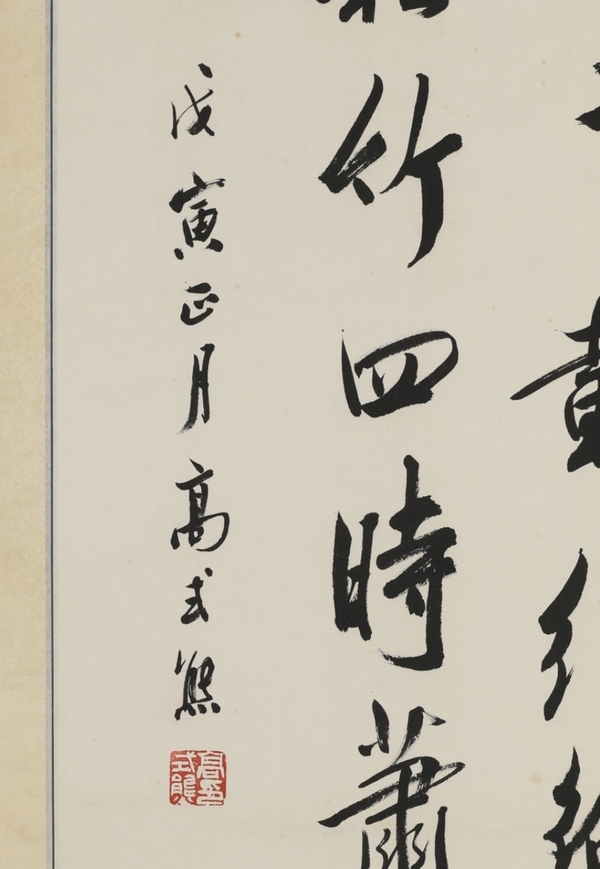 載
竹四時蕭
戊寅正月高式熊
高式熊印